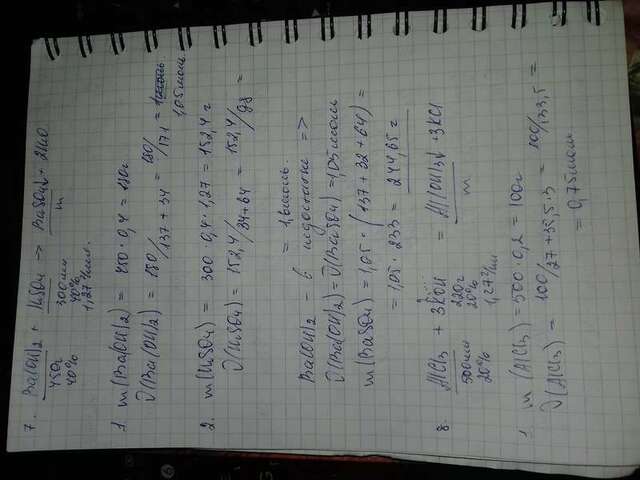 7. Ba(OH)2 + H2SO4 → BaSO4↓ + 2H2O
450г 300мл m
40% 40%
1,27г/мл.
1. m(Ba(OH)2) = 450 · 0,4 = 180г
∂(Ba(OH)2) = 180/137+34 = 180/171 = 1,05моль
2. m(H2SO4) = 300 · 0,4 · 1,27 = 152,4г
∂(H2SO4) = 152,4/34+64 = 152,4/98 =
= 1,6моль.
Ba(OH)2 - в недостатке =>
∂(Ba(OH)2) = ∂(BaSO4) = 1,05моль
m(BaSO4) = 1,05 · (137 + 32 + 64) =
= 1,05 · 233 = 244,65г
8. AlCl3 + 3KOH = Al(OH)3↓ + 3KCl
500мл 220г m
20% 20%
1,27г/мл
1. m(AlCl3) = 500 · 0,2 = 100г
∂(AlCl3) = 100/27+35,5·3 = 100/133,5 =
= 0,75моль